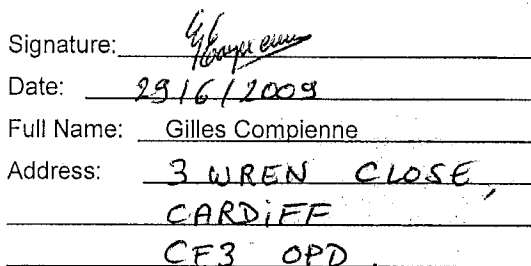 Signature: GCompienne
Date: 29/6/2009
Full Name: Gilles Compienne
Address: 3 WREN CLOSE,
CARDiFF
CF3 OPD.